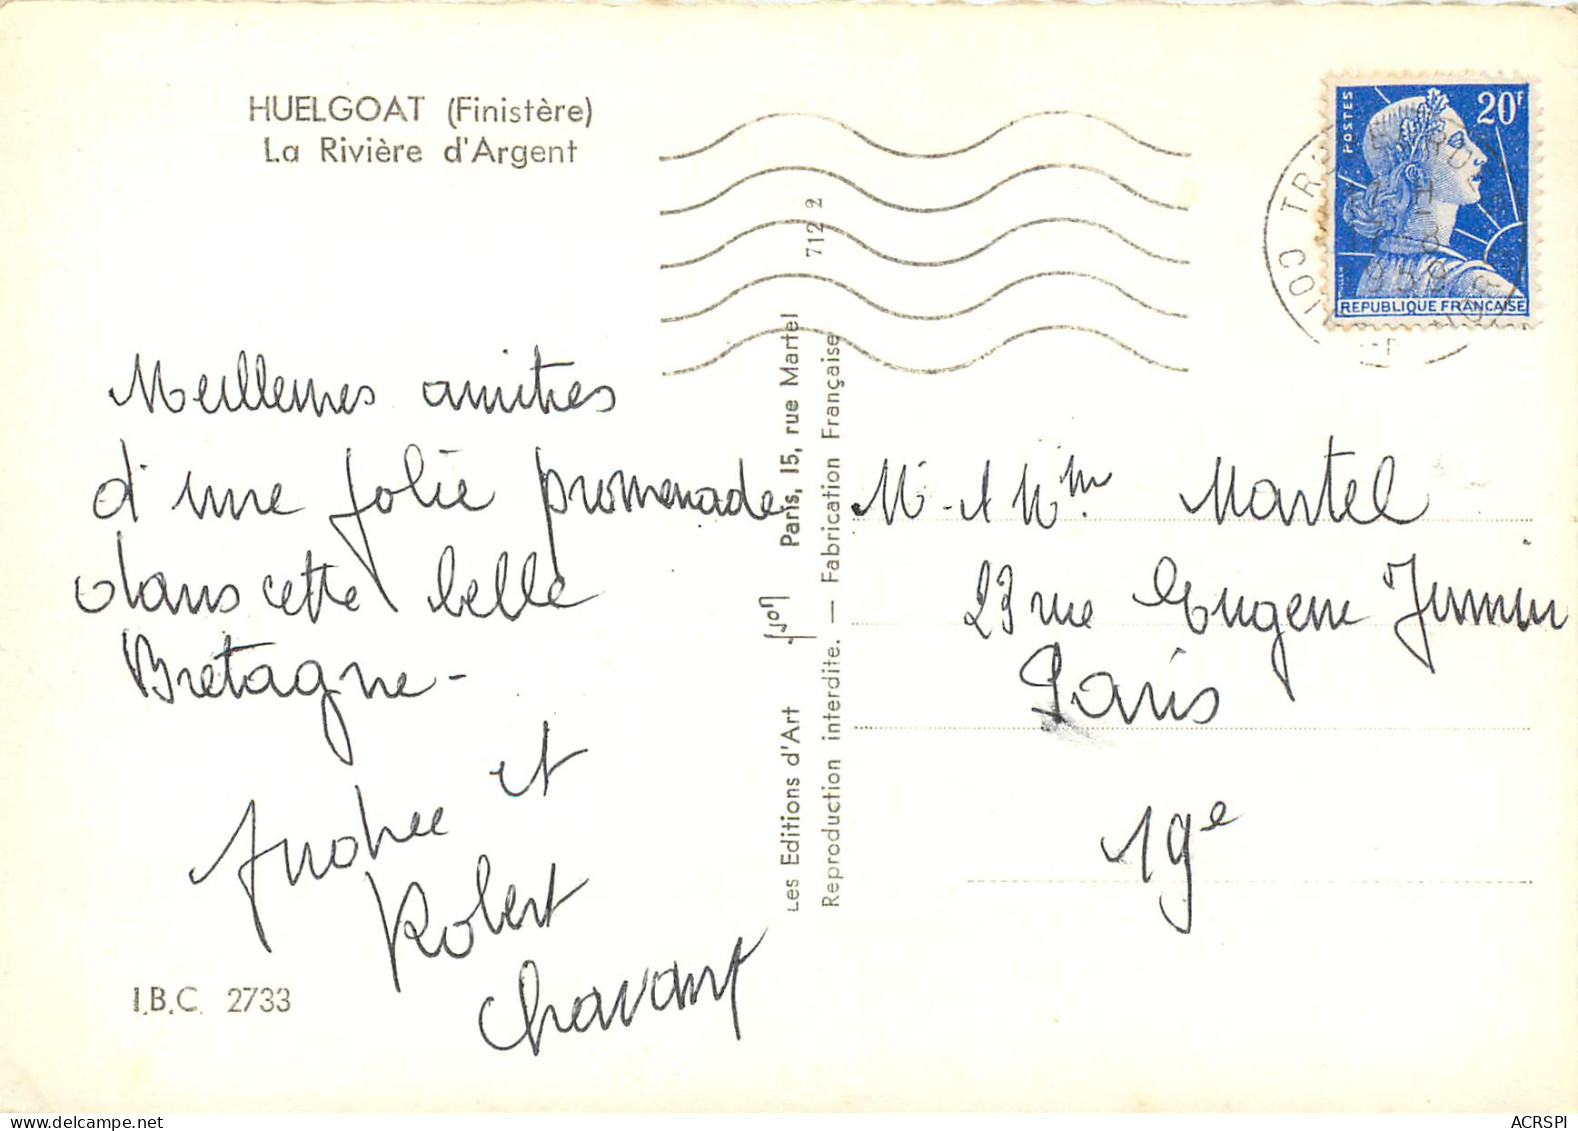 HUELGOAT (Finistère)
La Rivière d'Argent
Meilleures amitiés
d'une jolie promenade
dans cette belle
Bretagne -
Andrée et
Robert
Chavant
I.B.C. 2733
Les Editions d'Art
Paris, 15, rue Martel
7122
Reproduction interdite. — Fabrication Française
POSTES
20F
REPUBLIQUE FRANÇAISE
17 H
17-8
1959
Mr Martel
23 rue Eugene Jumin
Paris
19e
ACRSPI